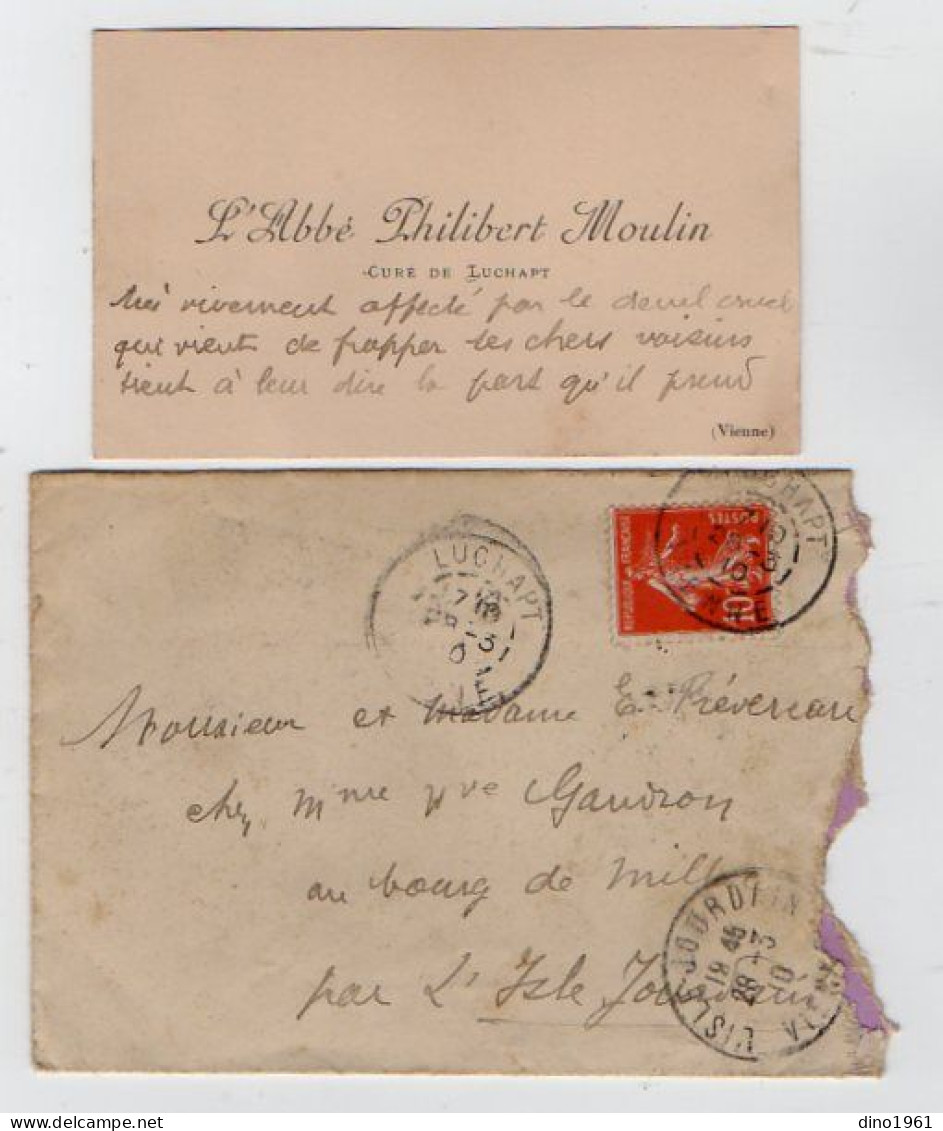 L'Abbé Philibert Moulin
CURÉ DE LUCHAPT
très vivement affecté par le deuil cruel
qui vient de frapper ses chers voisins
tient à leur dire la part qu'il prend
(Vienne)
LUCHAPT
POSTES
10
LUCHAPT
Monsieur et Madame E. Prévereau
chez Mme Vve Gaudron
au bourg de
par L'Isle Jourdain
L'ISLE-JOURDAIN
18 45
28 - 3
10
VIENNE
dino1961